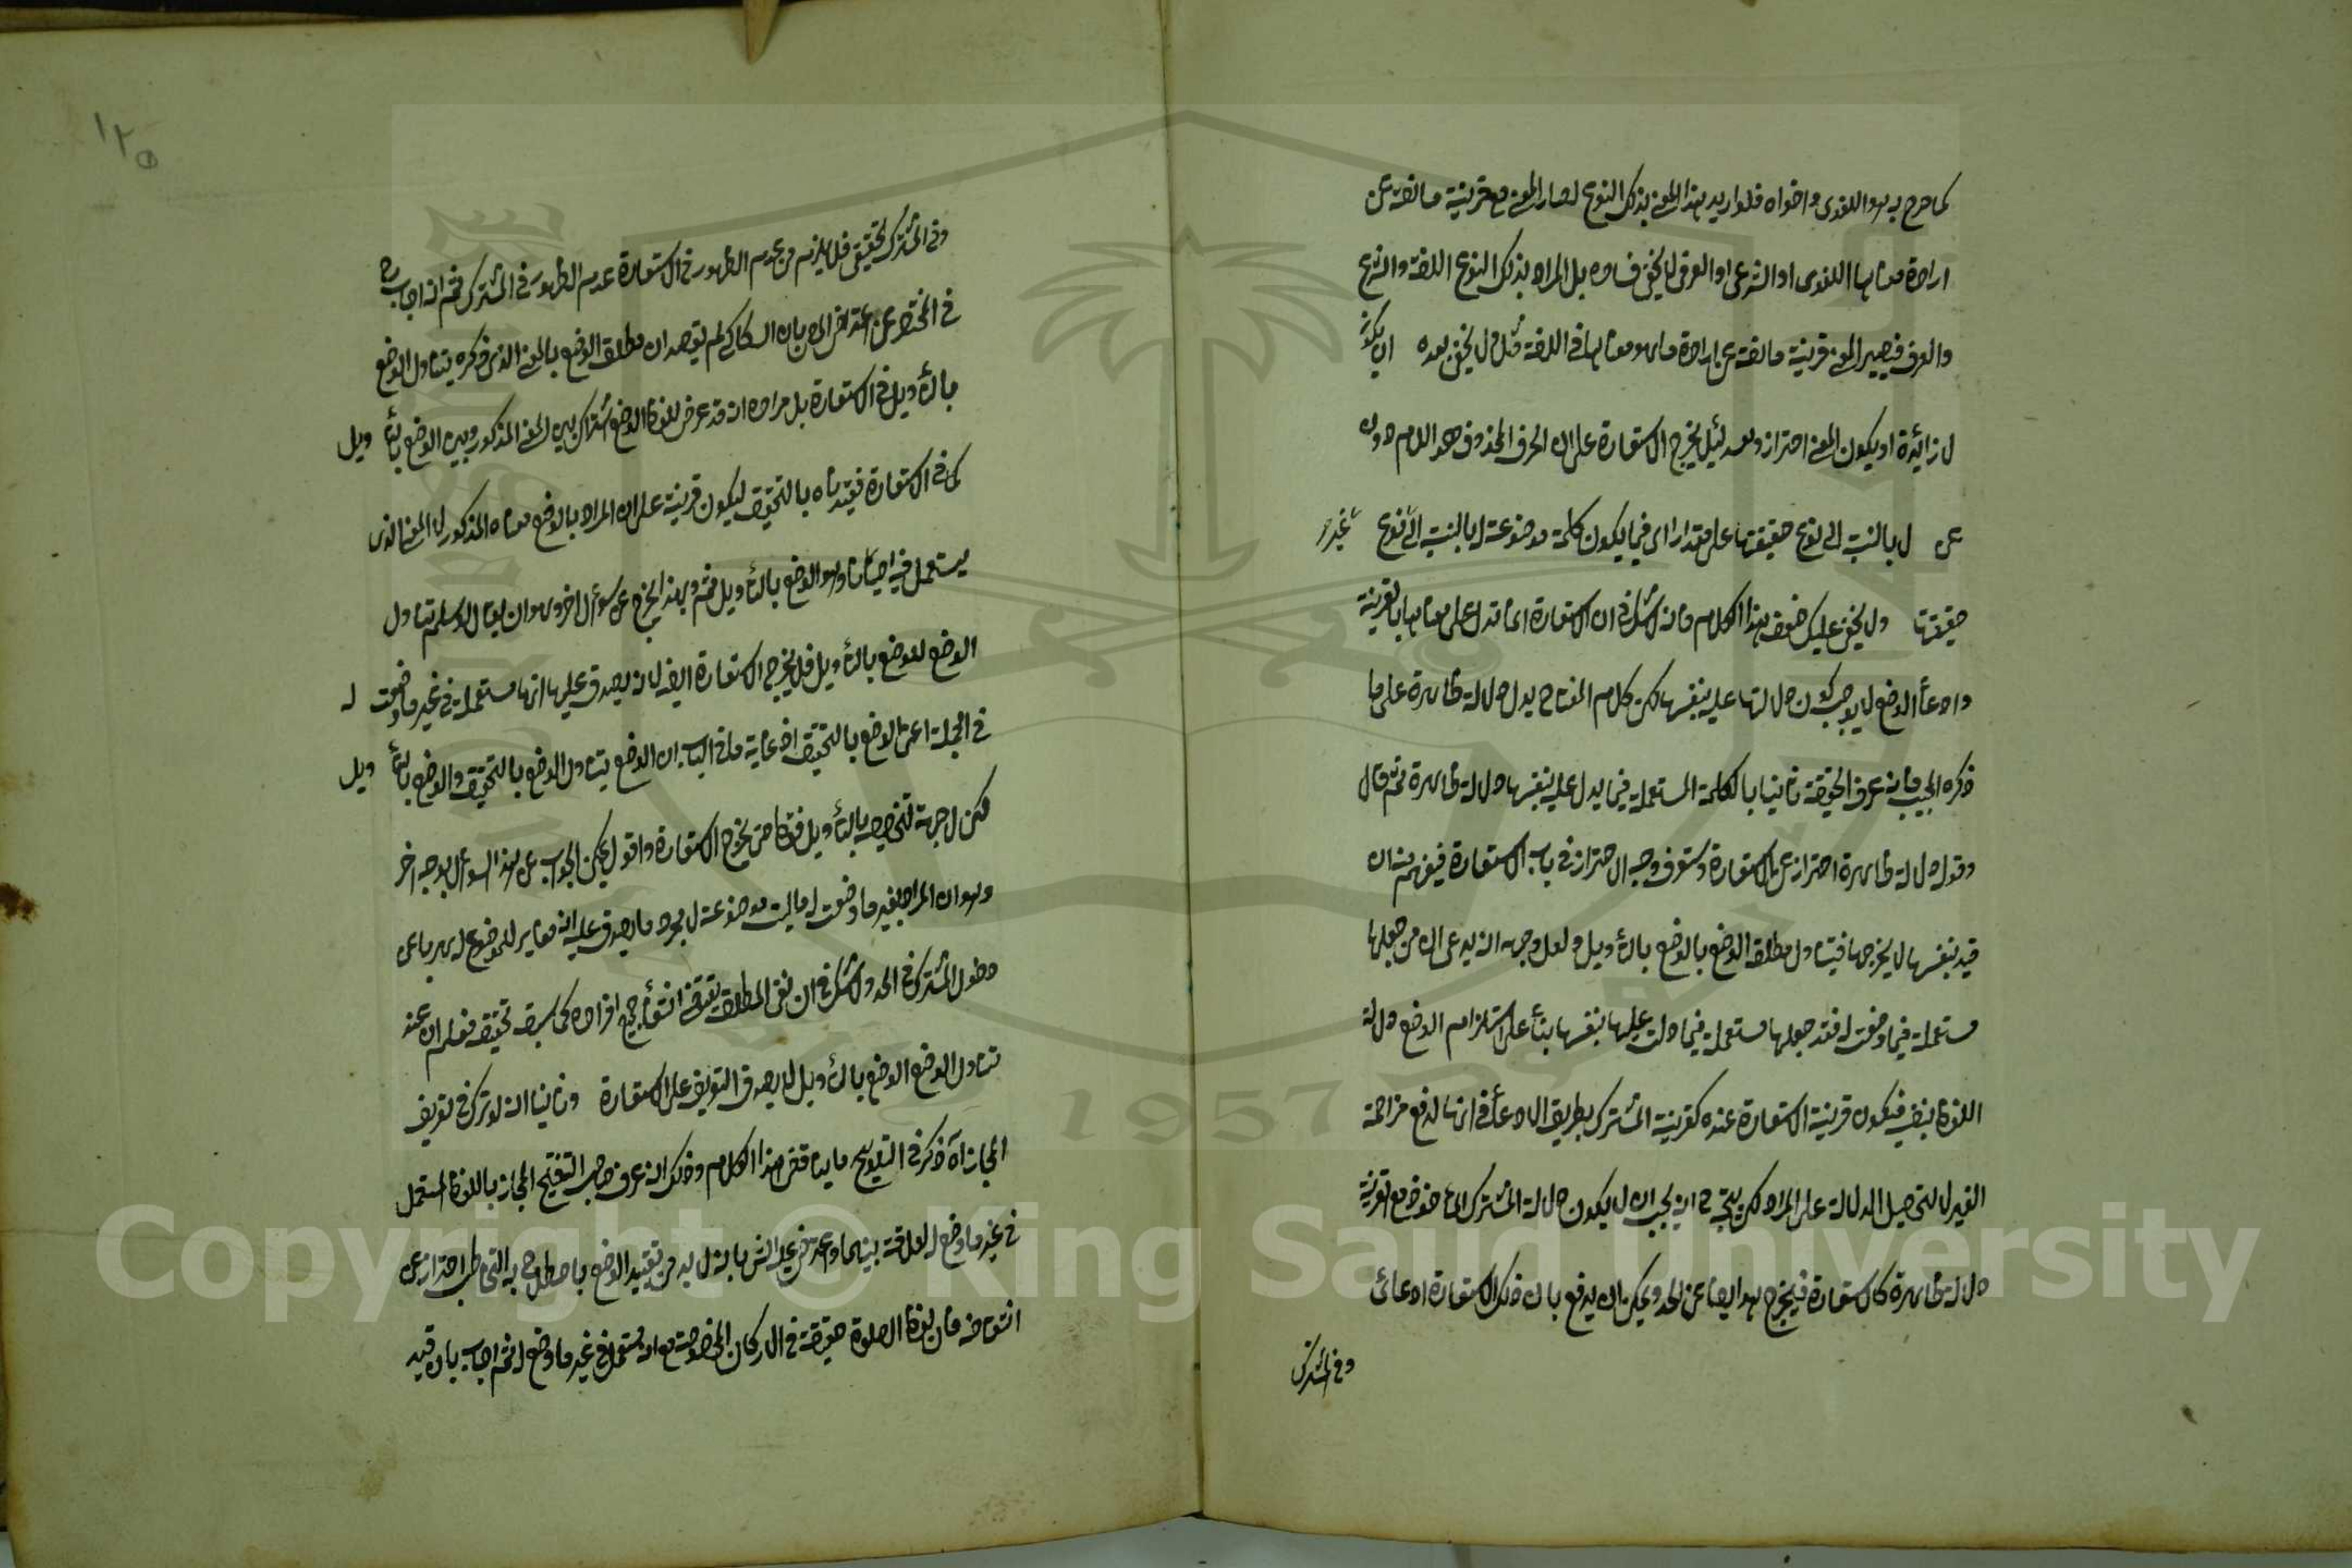 كما صرح به هو اللغوى واخواه فلو اريد بهذا المعنى بذلك النوع لصار المعنى مع قرينة مانعة عن
ارادة معناها اللغوى او الشرعى او العرفى لا يخفى فساده بل المراد بذلك النوع اللغة والشرع
والعرف فيصير المعنى قرينة مانعة عن ارادة ما هو معناها فى اللغة مثلا لا يخفى بعده ان يكون
لا زائدة او يكون المعنى احتراز وعد لئلا يخرج الاستعارة على ان الحرف المحذوف هو اللام دون
عن لا بالنسبة الى نوع حقيقتها على مقدار اى فيما يكون كلمة موضوعة لا بالنسبة الى نوع غير
حقيقتها ولا يخفى عليك ضعف هذا الكلام فانه لا شك فى ان الاستعارة انما تدل على معناها بالقرينة
وادعاء الوضع لا يوجب كون دلالتها عليه بنفسها لكن كلام المفتاح يدل دلالة ظاهرة على ما
ذكره المجيب فانه عرف الحقيقة ثانيا بالكلمة المستعملة فيما يدل عليه بنفسها دلالة ظاهرة ثم قال
وقوله دلالة ظاهرة احتراز عن الاستعارة وستعرف وجه الاحتراز فى باب الاستعارة فيفهم منه ان
قيد بنفسها لا يخرجها فيتناول مطلق الوضع بالوضع بالتأويل ولعل وجهه انه يدعى ان من جعلها
مستعملة فيما وضعت له فقد جعلها مستعملة فيما دلت عليها بنفسها بناء على استلزام الوضع دلالة
اللفظ بنفسه فيكون قرينة الاستعارة عنده كقرينة المشترك بطريق الادعاء فى انها لدفع مزاحمة
الغير لا لتحصيل الدلالة على المراد لكن يتجه ح انه يجب ان لا يكون دلالة المشترك المأخوذ مع القرينة
دلالة ظاهرة كالاستعارة فيخرج هو ايضا عن الحد ويمكن ان يدفع بان ذلك الاستعارة ادعائى
وفى المشترك
١٢٥
وفى المشترك تحقيقى فلا يلزم من عدم الظهور فى الاستعارة عدم الظهور فى المشترك ثم انه اجاب ح
فى المختصر عن اعتراض المص بان السكاكى لم يقصد ان مطلق الوضع بالمعنى الذى ذكره يتناول الوضع
بالتأويل فى الاستعارة بل مراده انه قد عرض للفظ الوضع اشتراك بين المعنى المذكور وبين الوضع بالتأ ويل
كما فى الاستعارة فقيدناه بالتحقيق ليكون قرينة على ان المراد بالوضع معناه المذكور لا المعنى الذى
يستعمل فيه احيانا وهو الوضع بالتأويل ثم وبهذا يخرج عن سؤال اخر وهو ان يقال لو سلم تناول
الوضع للوضع بالتأويل فلا يخرج الاستعارة ايضا لانه يصدق عليها انها مستعملة فى غير ما وضعت له
فى الجملة اعنى الوضع بالتحقيق اذ غاية ما فى الباب ان الوضع يتناول الوضع بالتحقيق والوضع بالتأ ويل
لكن لا جهة لتخصيصه بالتأويل فقط حتى يخرج الاستعارة واقول يمكن الجواب عن هذا السؤال بوجه اخر
وهو ان المراد بغير ما وضعت له ما ليست موضوعة له بمجرد ما يصدق عليه انه مغاير للموضوع له
دخول المشترك فى الحد ولا شك فى ان نفى المطلق يقتضى انتفاء جميع افراده كما سبق تحقيقه فعلم ان عند
تناول الوضع الوضع بالتأويل لا يصدق التعريف على الاستعارة وثانيا انه لو ترك فى تعريف
المجاز آه ذكر فى التلويح ما يناقض هذا الكلام وذلك انه عرف صاحب التنقيح المجاز باللفظ المستعمل
فى غير ما وضع له لعلاقة بينهما واعترض عليه الش بانه لا بد من تقييد الوضع باصطلاح به التخاطب احترازا عن
انتقاضه فان لفظ الصلوة حقيقة فى الاركان المخصوصة مع انه مستعمل فى غير ما وضع له ثم اجاب بان قيد
Copyright © King Saud University
1957